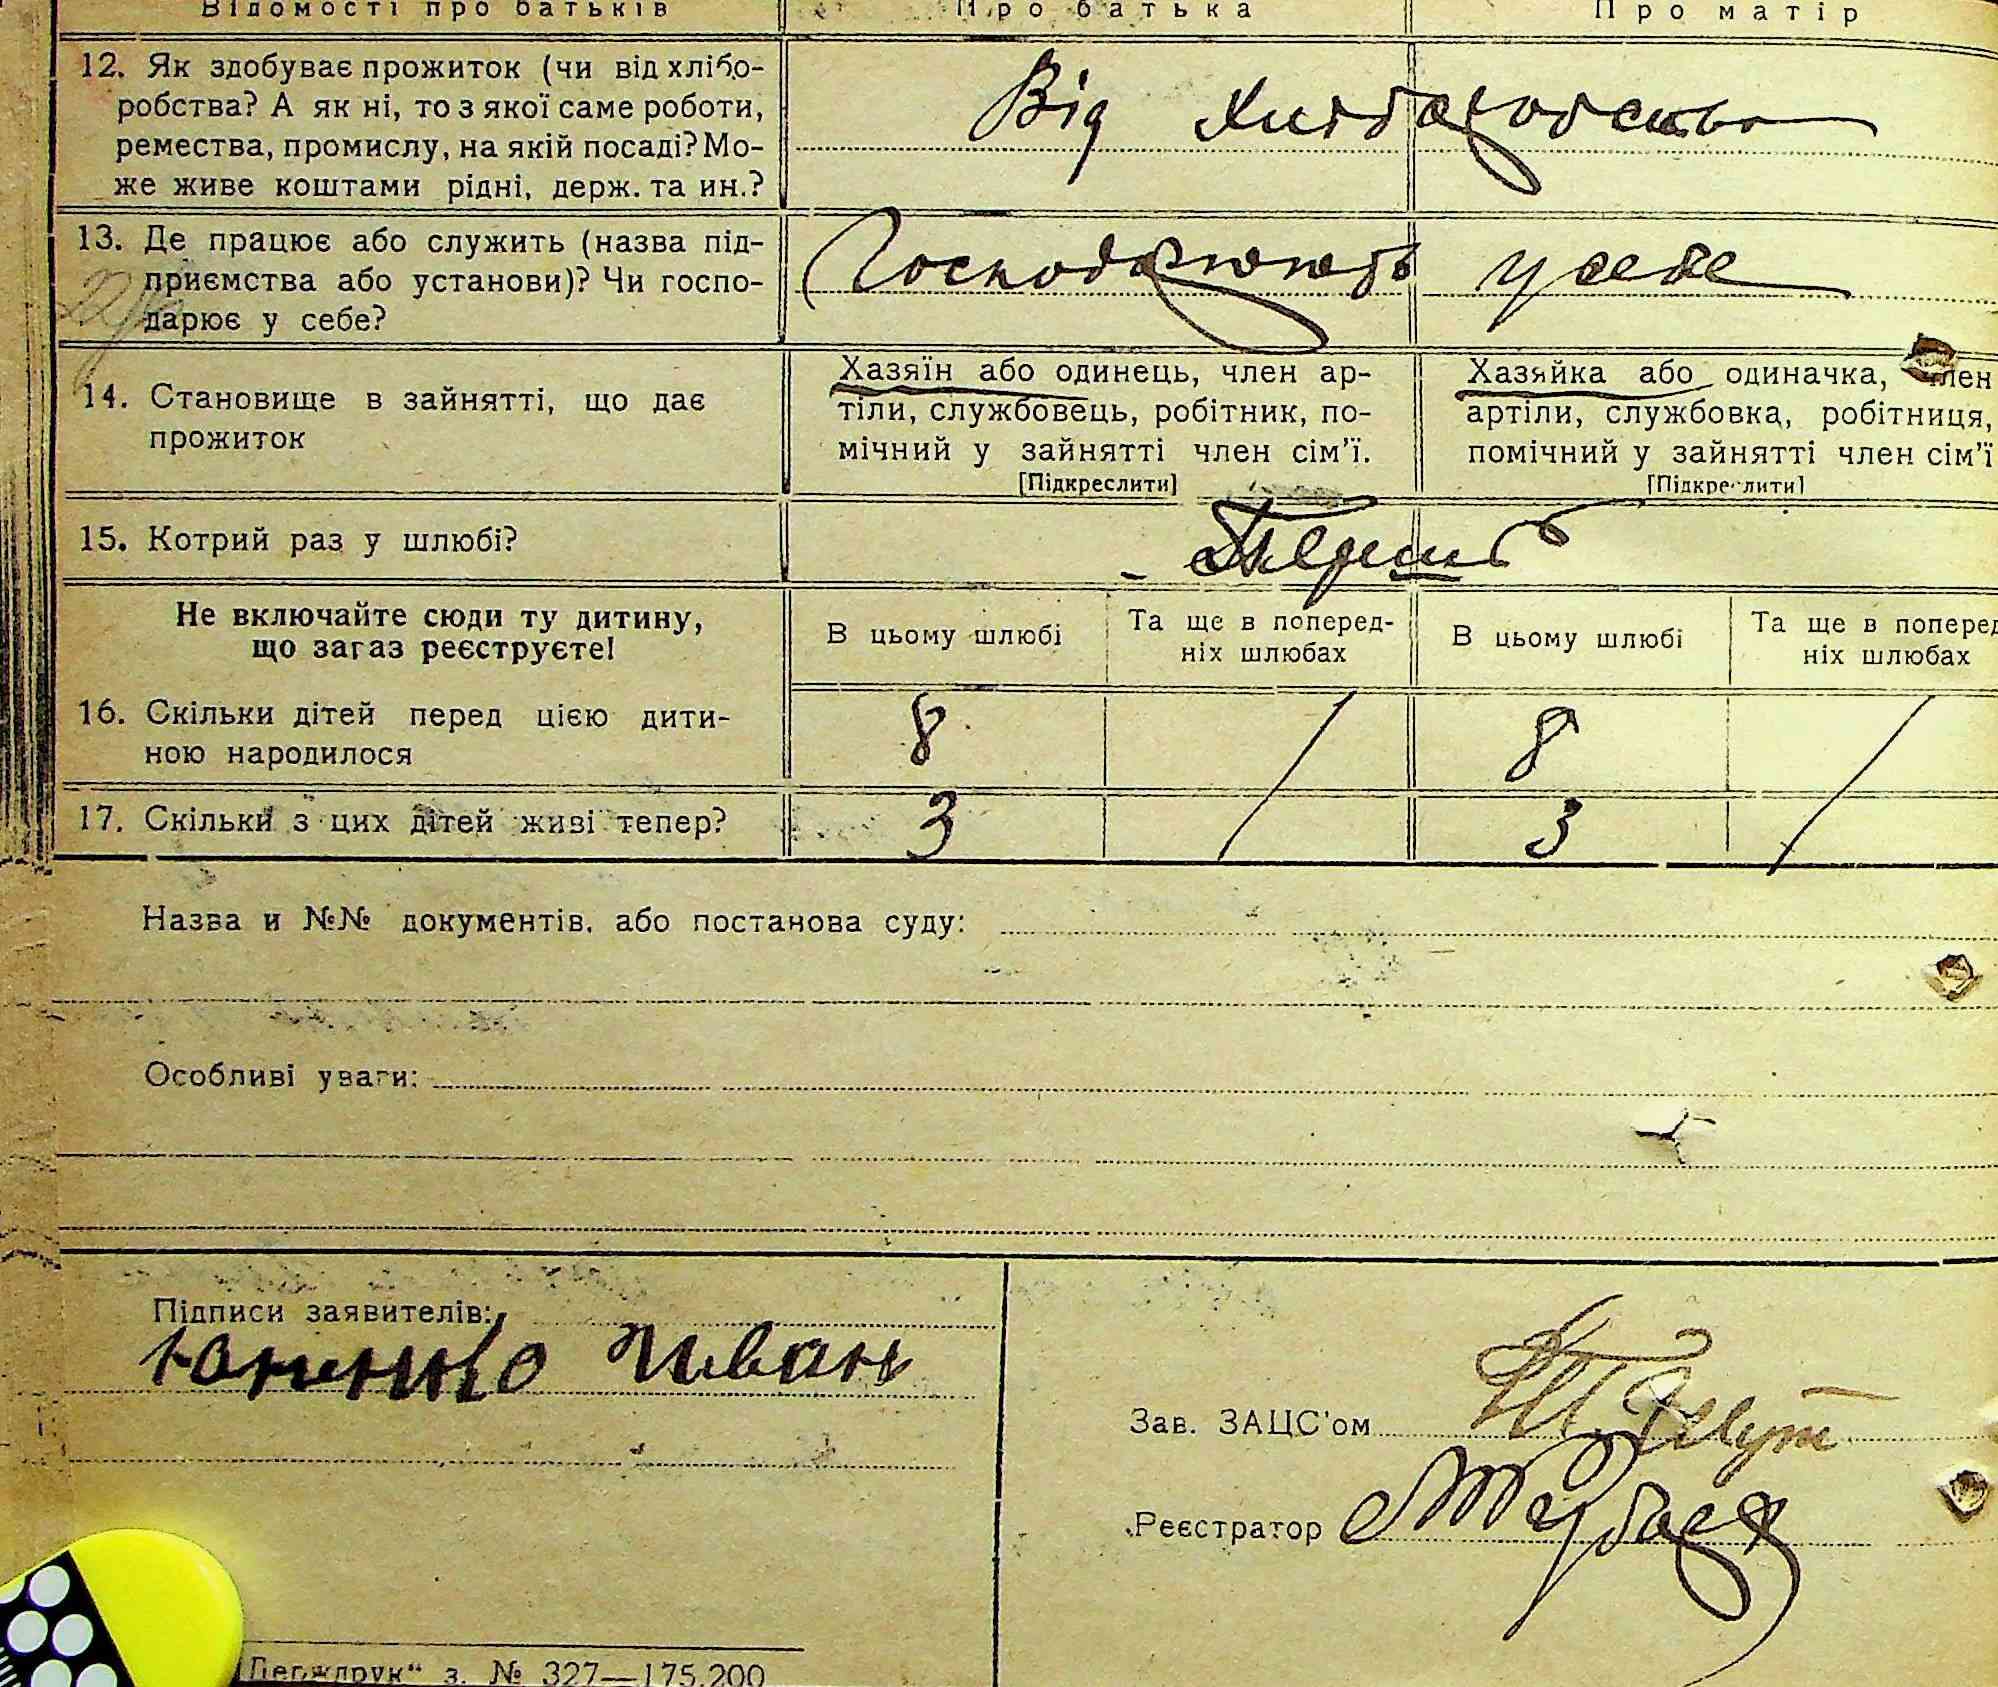 Відомості про батьків Про батька Про матір
12. Як здобуває прожиток (чи від хлібо-
робства? А як ні, то з якої саме роботи,
ремества, промислу, на якій посаді? Мо-
же живе коштами рідні, держ. та ин.?
Від хліборобства
13. Де працює або служить (назва під-
приємства або установи)? Чи госпо-
дарює у себе?
Господарюють у себе
14. Становище в зайнятті, що дає
прожиток
Хазяїн або одинець, член ар-
тіли, службовець, робітник, по-
мічний у зайнятті член сім'ї.
[Підкреслити]
Хазяйка або одиначка, член
артіли, службовка, робітниця,
помічний у зайнятті член сім'ї
[Підкреслити]
15. Котрий раз у шлюбі?
Перший
Не включайте сюди ту дитину,
що загаз реєструєте!
В цьому шлюбі
Та ще в поперед-
ніх шлюбах
В цьому шлюбі
Та ще в поперед
ніх шлюбах
16. Скільки дітей перед цією дити-
ною народилося
8 / 8 /
17. Скільки з цих дітей живі тепер?
3 3
Назва и №№ документів, або постанова суду:
Особливі уваги:
Підписи заявителів:
Юненко Иван
Зав. ЗАЦС'ом
Реєстратор
„Держдрук“ з. № 327—175.200